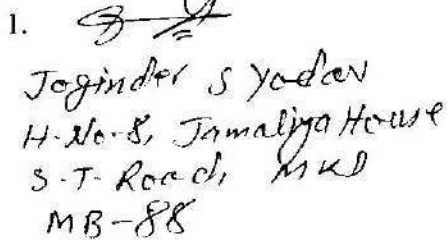 1.
Joginder S Yadav
H-No-8, Jamaliya House
S-T-Road, MKD
MB-88